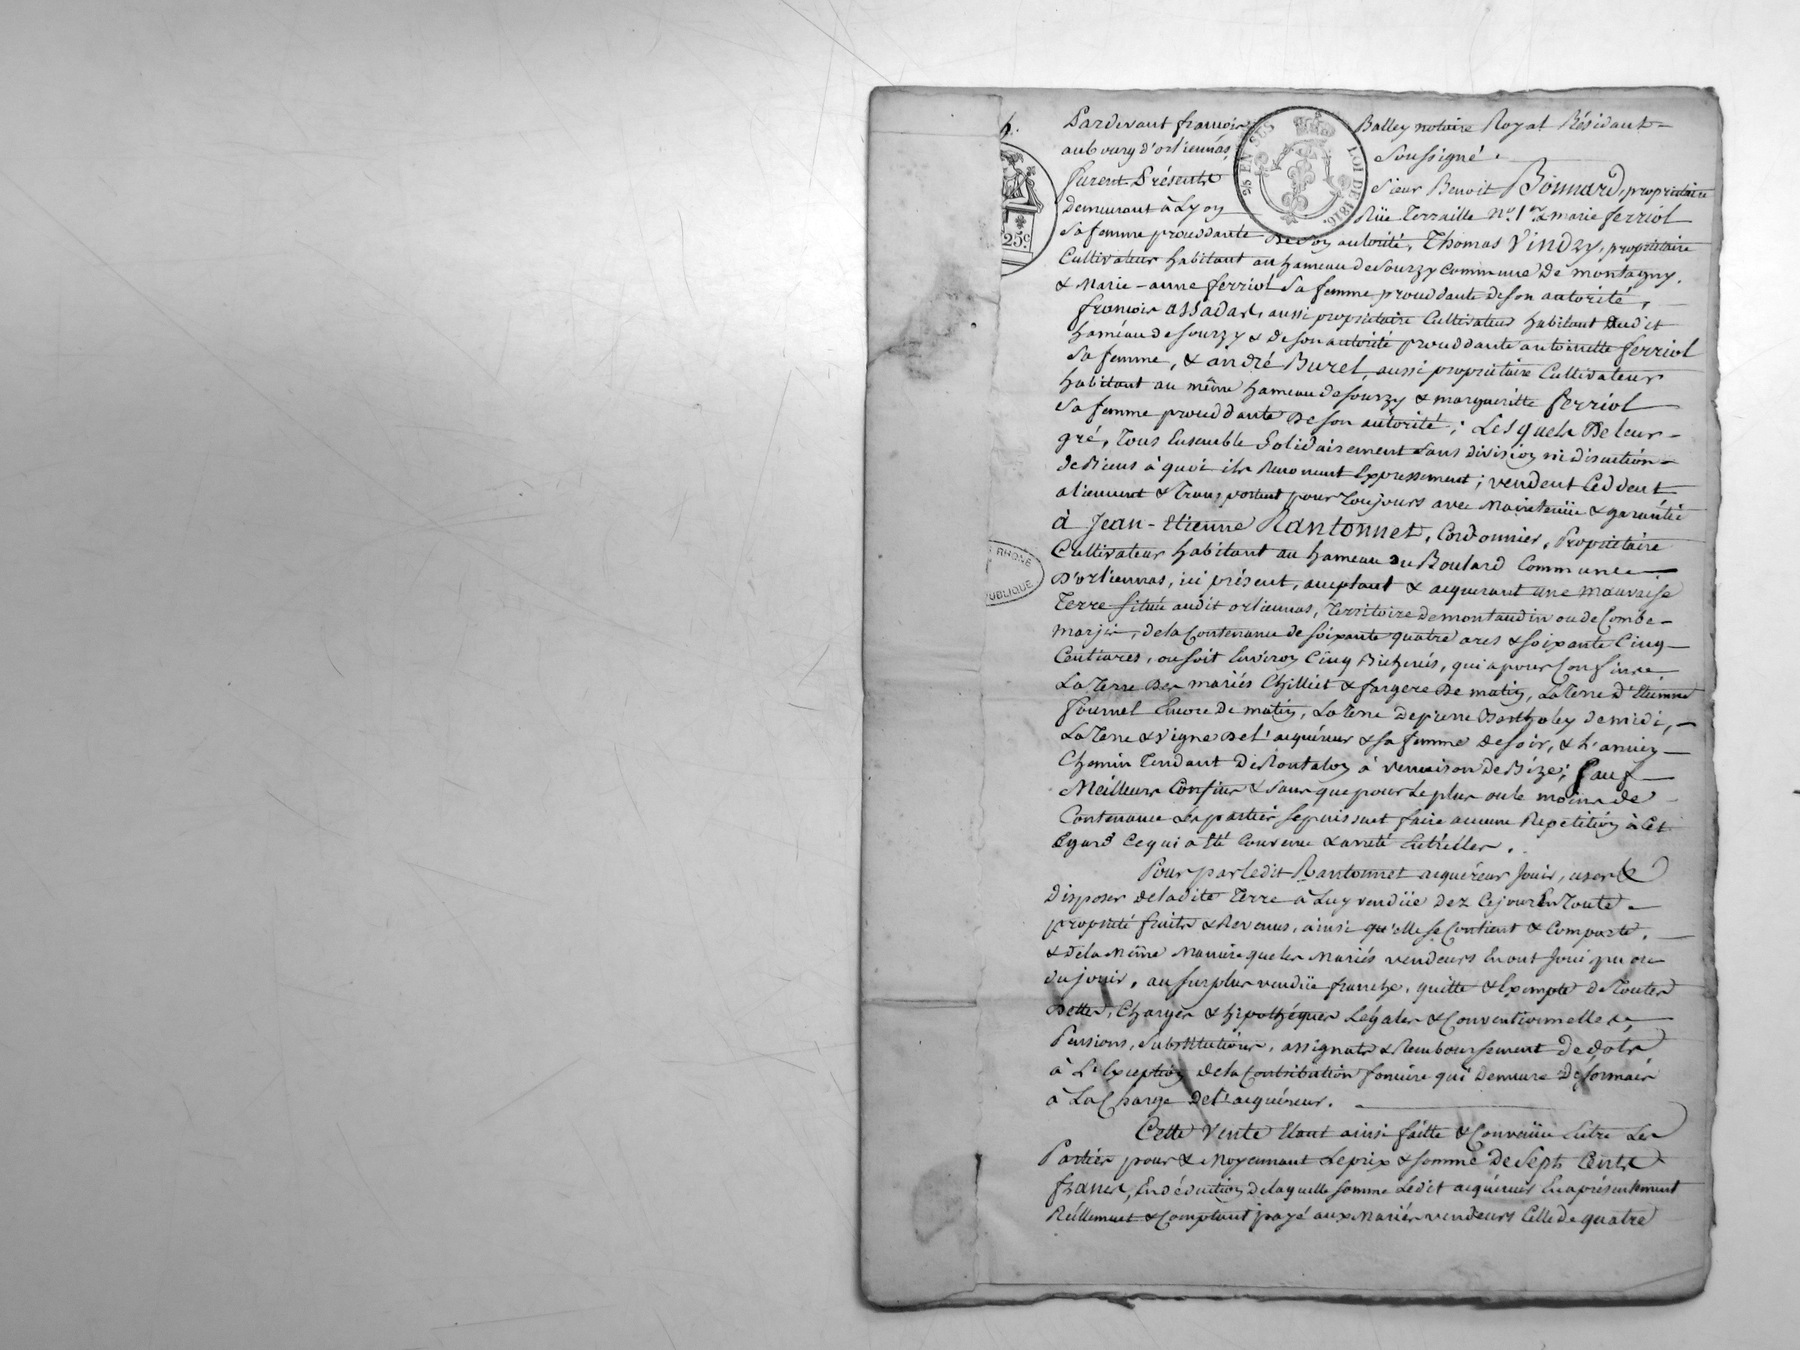 Pardevant françois Balley notoire Royal Résidant
aubourg d'orliennas, Soussigné.
furent Présents Sieur Benoit Bonnard, propriétaire
demeurant à Lyon Rüe Terraille n.° 1er & marie ferriol
Sa femme procédante De Son autorité, Thomas Vindry, propriétaire
Cultivateur habitant au hameau de Sourzy Commune De montagny,
& Marie-anne ferriol Sa femme procédante de Son autorité,
françois assadas, aussi propriétaire Cultivateur habitant Audit
haméau de Sourzy & de Son autorité procédante antoinette ferriol
Sa femme, & andré Burel, aussi propriétaire Cultivateur
habitant au même hameau de Sourzy & margueritte ferriol
Sa femme procédante De Son autorité; Lesquels De leur
gré, Tous Ensemble Solidairement Sans division ni discution
de Biens à quoi ils Renoncent Expressement; vendent Ceddent
aliennent & Transportent pour Toujours avec Maintenüe & garantie
à Jean-Etienne Rantonnet, Cordonnier, Propriétaire
Cultivateur habitant au hameau du Boulard Commune
D'orliennas, ici présent, acceptant & acquerant une mauvaise
Terre Située audit orliennas, Territoire de montaudin ou de Combe-
marjin, de la Contenance de Soixante quatre ares & Soixante Cinq
Centiares, ou Soit Environ Cinq Bicherés, qui a pour Confins
La Terre Des mariés Chilliet & fargere De matin, La Terre d'Etienne
fournel Encore De matin, La Terre De pierre Bartholey de midi,
La Terre & Vigne De L'acquéreur & Sa femme De Soir, & L'ancien
Chemin Tendant De Montaloy à Vernaison De Bize; Sauf
Meilleurs Confins & Sans que pour Le plus ou le moins de
Contenance Les parties Se puissent faire aucune Repetition à Cet
Egard Ce qui a Eté Convenu & arreté Entr'elles.
Pour par Ledit Rantonnet acquéreur Jouir, user &
Disposer de ladite Terre à Luy vendüe dez Ce jour En Toute
propriété fruits & Revenus, ainsi qu'elle Se Contient & Comporte,
& de la Même Maniere que les Mariés vendeurs En ont Joui pu ou
du jouir, au Surplus vendüe franche, quitte & Exempte de Toutes
Dettes, Charges & hipothéques Légales & Conventionnelles,
Pensions, Substitutions, assignats & Remboursement De dots
à L'Exception de la Contribution fonciere qui Demeure Désormais
à La Charge De L'acquéreur.
Cette Vente Etant ainsi faitte & Convenüe Entre Les
Parties pour & Moyennant Le prix & Somme De Sept Cents
francs, En déduction de laquelle Somme Ledit acquéreur En a présentement
Réellement & Comptant payé aux Mariés vendeurs Celle De quatre
25 EN SUS
LOI DE 1816.
25c
RHONE
PUBLIQUE